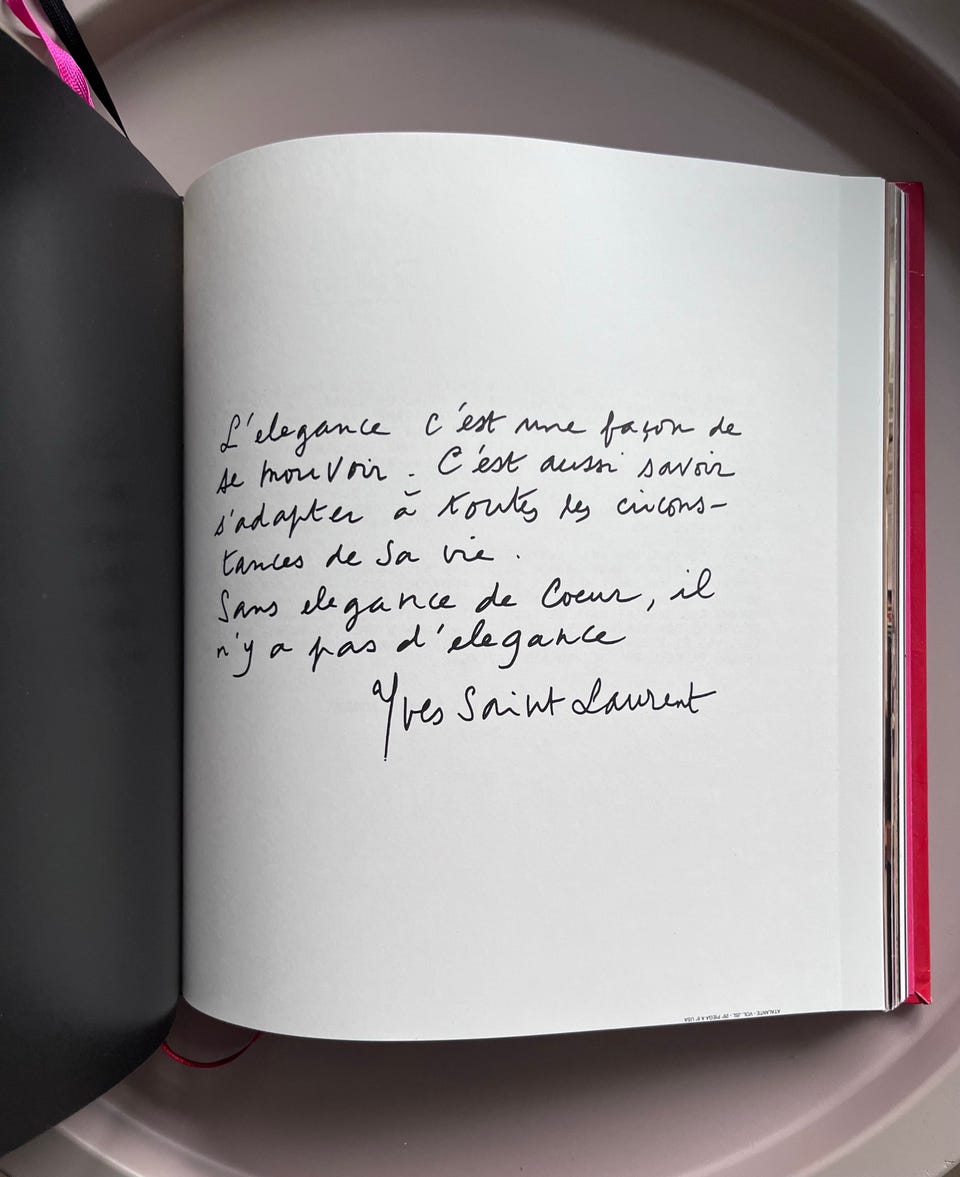 L'elegance c'est une façon de
se mouvoir. C'est aussi savoir
s'adapter à toutes les circons-
tances de sa vie.
Sans elegance de Coeur, il
n'y a pas d'elegance
Yves Saint Laurent